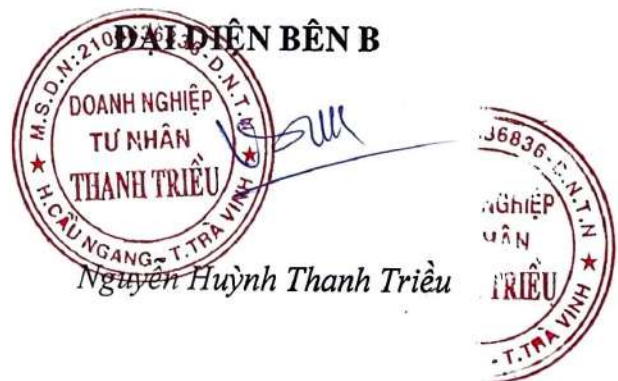 ĐẠI DIỆN BÊN B
DOANH NGHIỆP
TƯ NHÂN
THANH TRIỀU
H.CẦU NGANG - T.TRÀ VINH
Nguyễn Huỳnh Thanh Triều
36836-D.N.T.N
NGHIỆP
NHÂN
TRIỀU
- T.TRÀ VINH